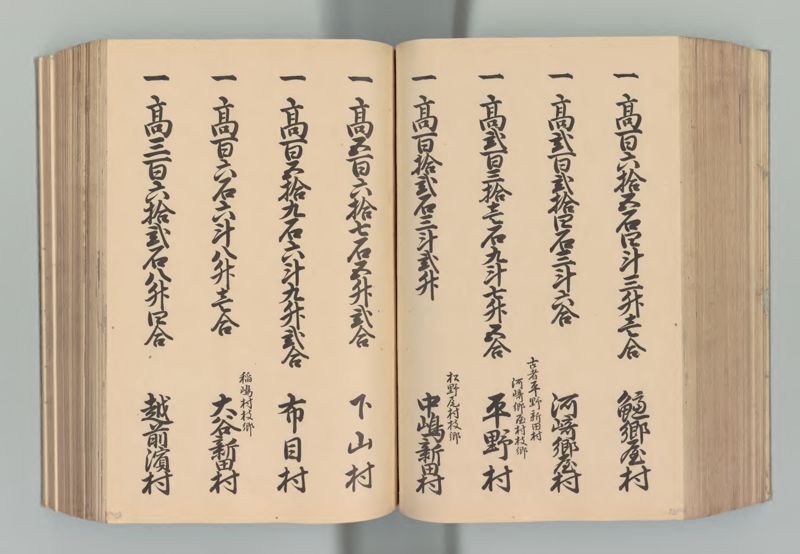 一 高百六拾五石四斗三升壱合 鱸郷屋村
一 高弐百弐拾四石三斗六合 河崎郷屋村
古者平野新田村
河崎郷屋村枝郷
一 高弐百三拾壱石九斗七升五合 平野村
松野尾村枝郷
一 高百拾弐石三斗弐升 中嶋新田村
一 高五百六拾七石五升弐合 下山村
一 高百五拾九石六斗九升弐合 布目村
稲嶋村枝郷
一 高百六石六斗八升壱合 大谷新田村
一 高三百六拾弐石八升四合 越前濱村